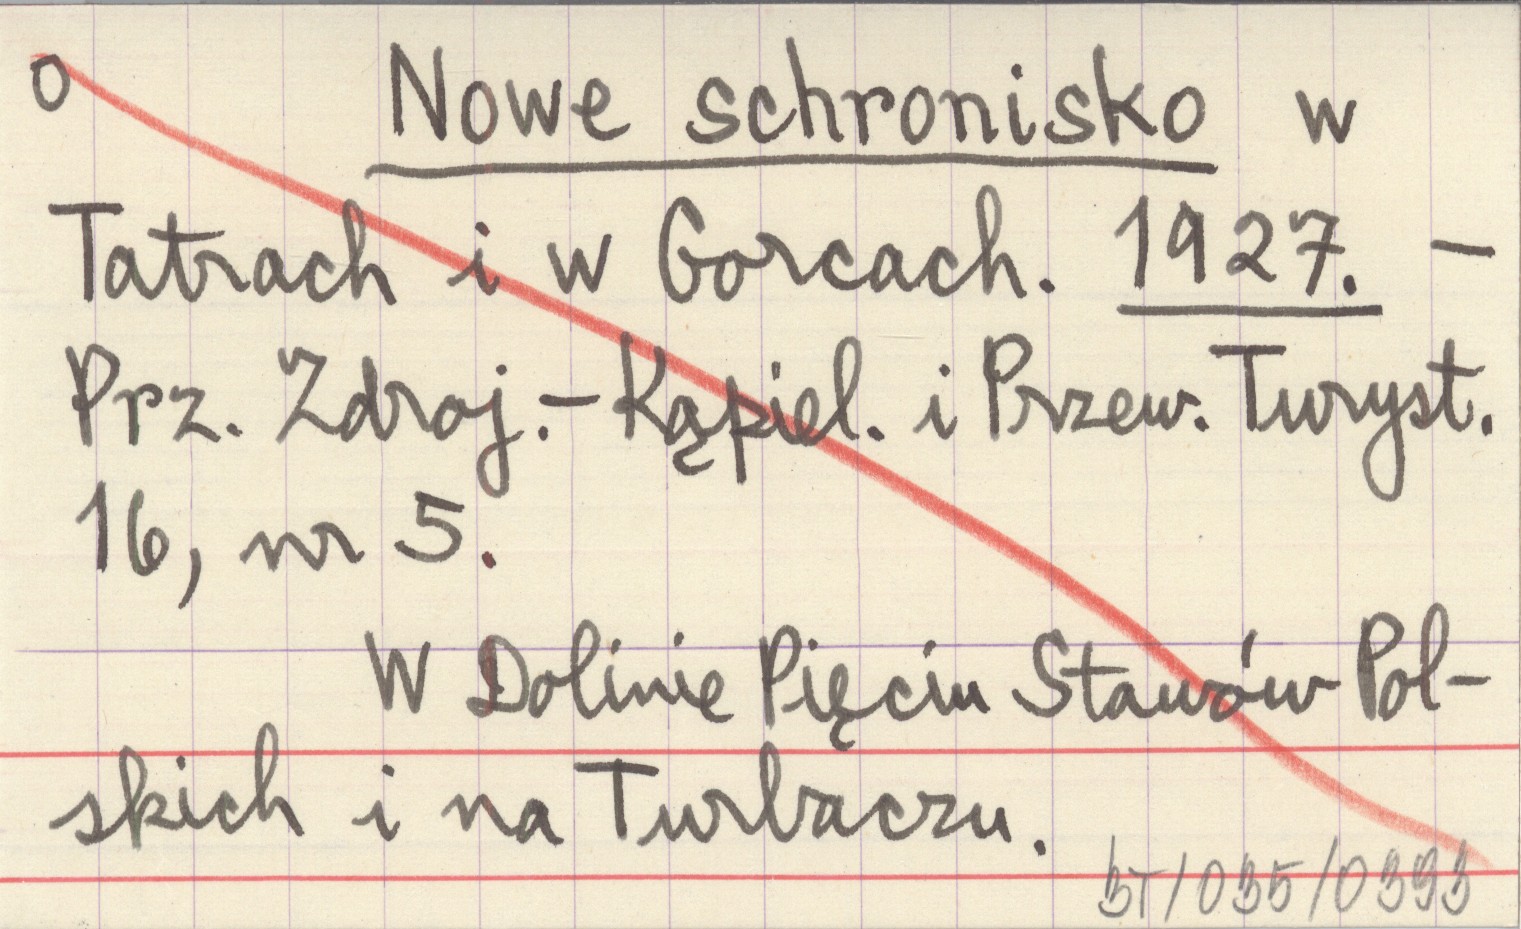 O Nowe schronisko w
Tatrach i w Gorcach. 1927. –
Prz. Zdroj.-Kąpiel. i Przew. Turyst.
16, nr 5.
W Dolinie Pięciu Stawów Pol-
skich i na Turbaczu.
BT/035/0393